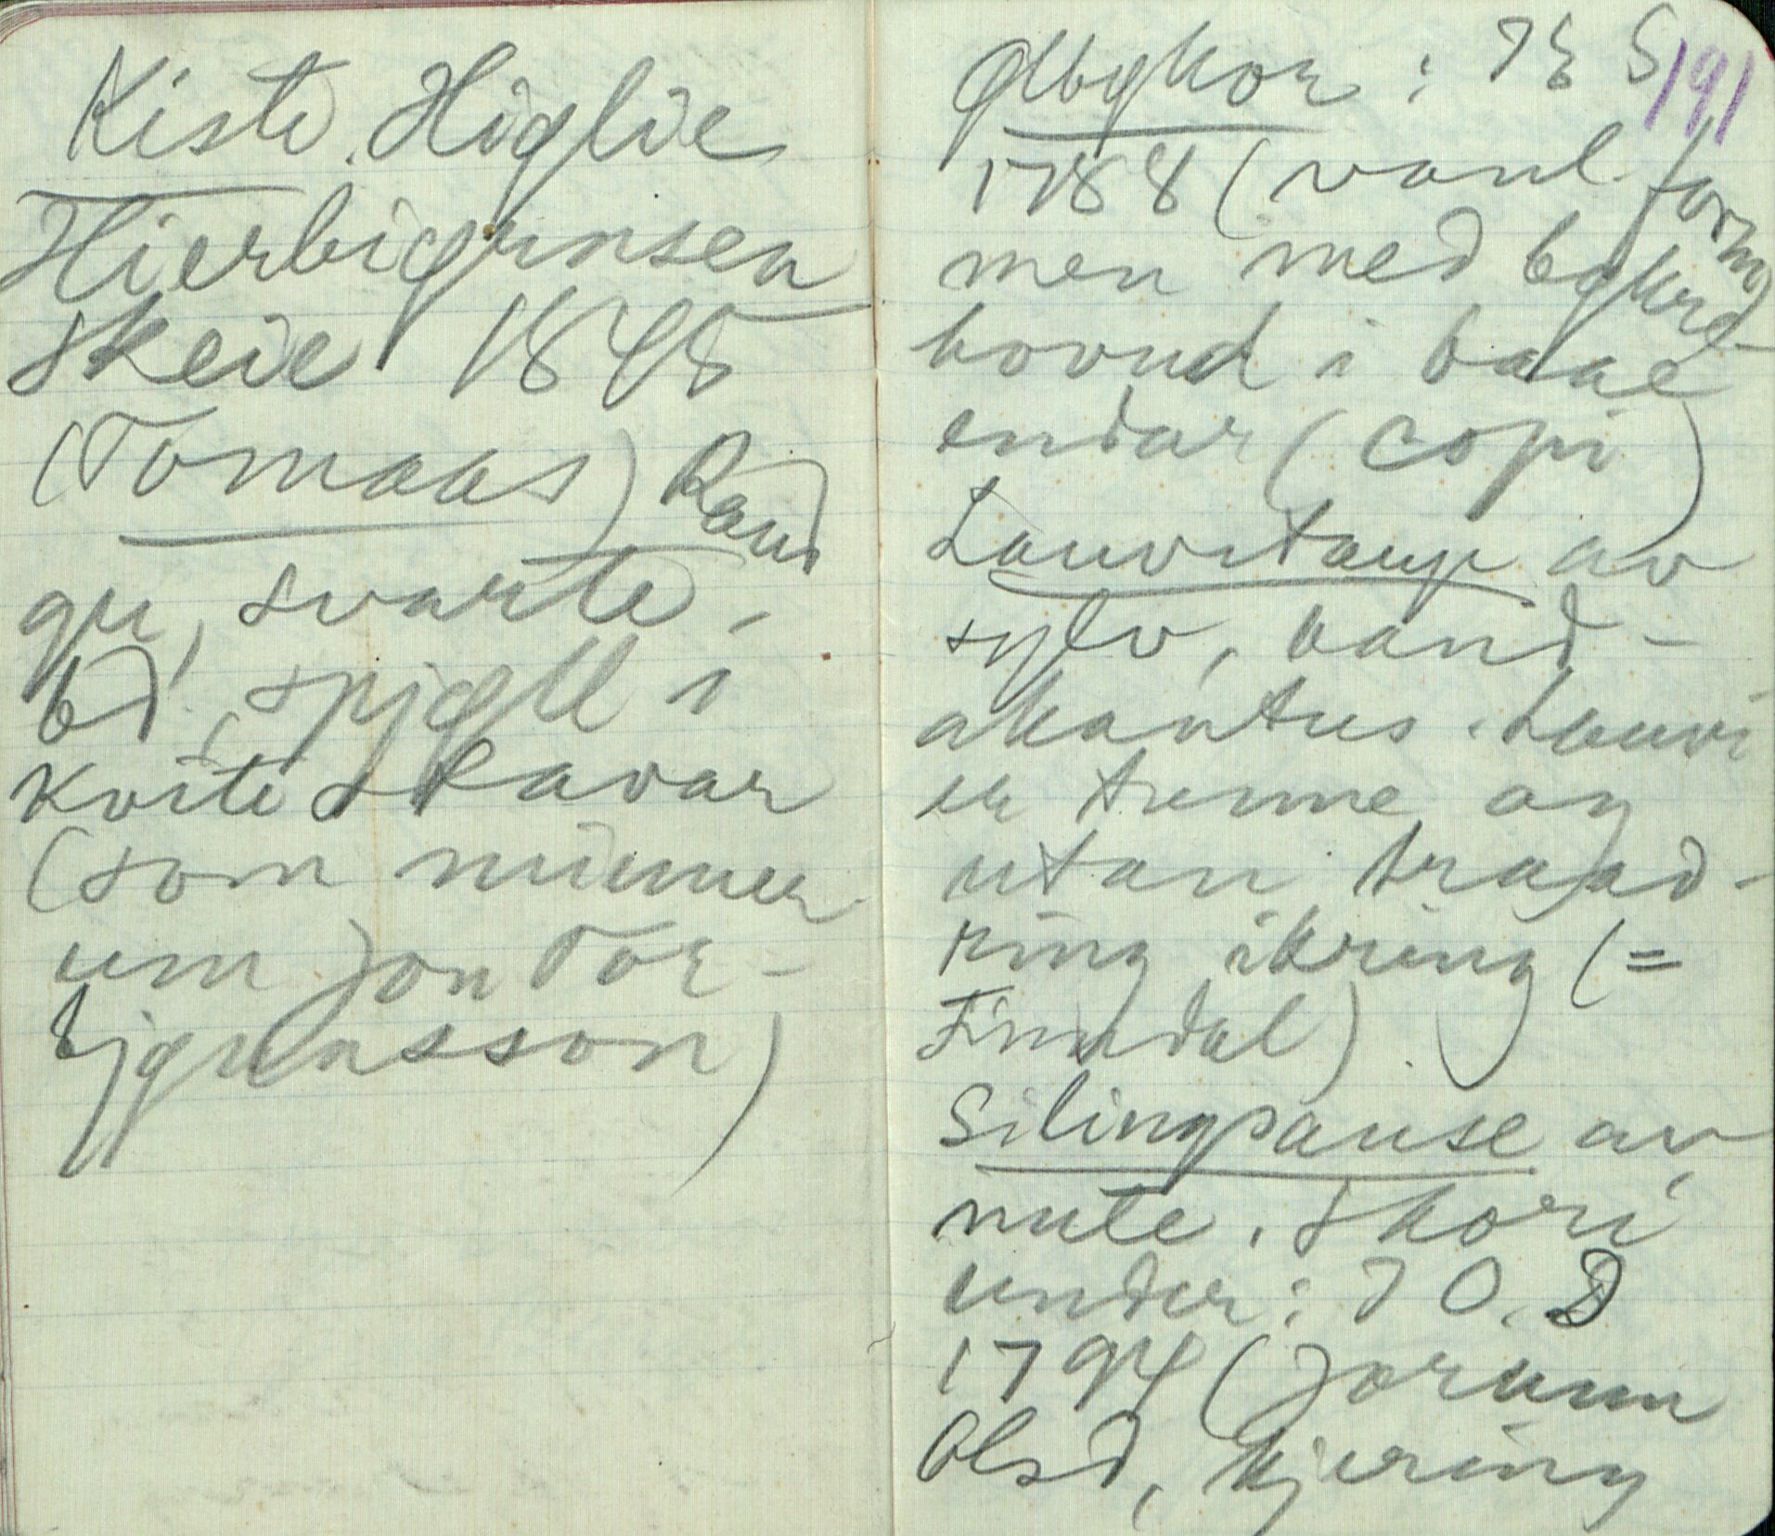 Kiste. Høglie
Hierbiørnsen
Skeie 1848
(Tomaas) Raud
gr, svarte,
bd, spjøll i
kvite skavar
(som minner
um Jon Tor-
bjørnsson)
191
Ølbykor: TES
1788 (vanl. form
men med
hovud i baae
endar (copi)
Lauvstaup av
sylv, band-
akantus. Lauvi
er tunne og
utan traad-
ring ikring (=
Finndal)
Silingsause av
nute. Skori
under: TO.D
1794 (Jorunn
Olsd, kjering